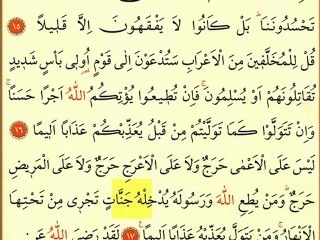 تَحْسُدُونَنَاۜ بَلْ كَانُوا لَا يَفْقَهُونَ اِلَّا قَلٖيلًا ١٥
قُلْ لِلْمُخَلَّفٖينَ مِنَ الْاَعْرَابِ سَتُدْعَوْنَ اِلٰى قَوْمٍ اُو۬لٖى بَأْسٍ شَدٖيدٍ
تُقَاتِلُونَهُمْ اَوْ يُسْلِمُونَۚ فَاِنْ تُطٖيعُوا يُؤْتِكُمُ اللّٰهُ اَجْرًا حَسَنًاۚ
وَاِنْ تَتَوَلَّوْا كَمَا تَوَلَّيْتُمْ مِنْ قَبْلُ يُعَذِّبْكُمْ عَذَابًا اَلٖيمًا ١٦
لَيْسَ عَلَى الْاَعْمٰى حَرَجٌ وَلَا عَلَى الْاَعْرَجِ حَرَجٌ وَلَا عَلَى الْمَرٖيضِ
حَرَجٌۜ وَمَنْ يُطِعِ اللّٰهَ وَرَسُولَهُ يُدْخِلْهُ جَنَّاتٍ تَجْرٖى مِنْ تَحْتِهَا
الْاَنْهَارُۚ وَمَنْ يَتَوَلَّ يُعَذِّبْهُ عَذَابًا اَلٖيمًا ١٧ لَقَدْ رَضِىَ اللّٰهُ عَنِ